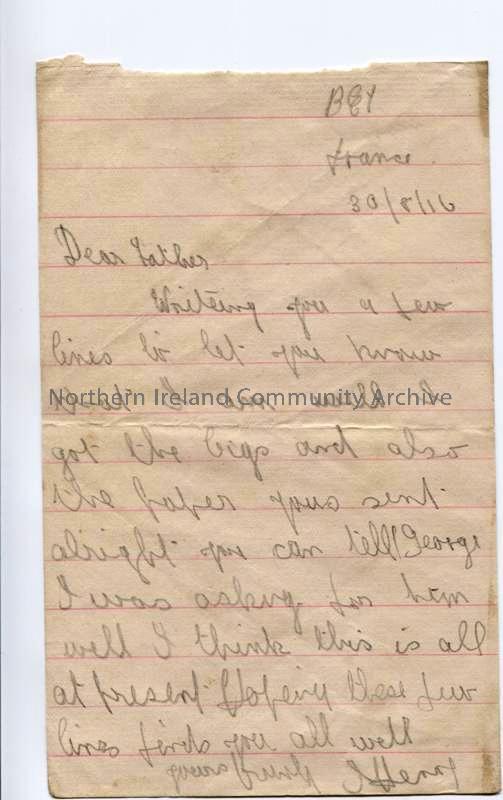 BEF
France
30/8/16
Dear Father
Writeing you a few
lines to let you know
that I am well I
Northern Ireland Community Archive
got the Cigs and also
the paper yous sent
alright you can tell George
I was asking for him
well I think this is all
at present Hopeing these few
lines find you all well
Henry